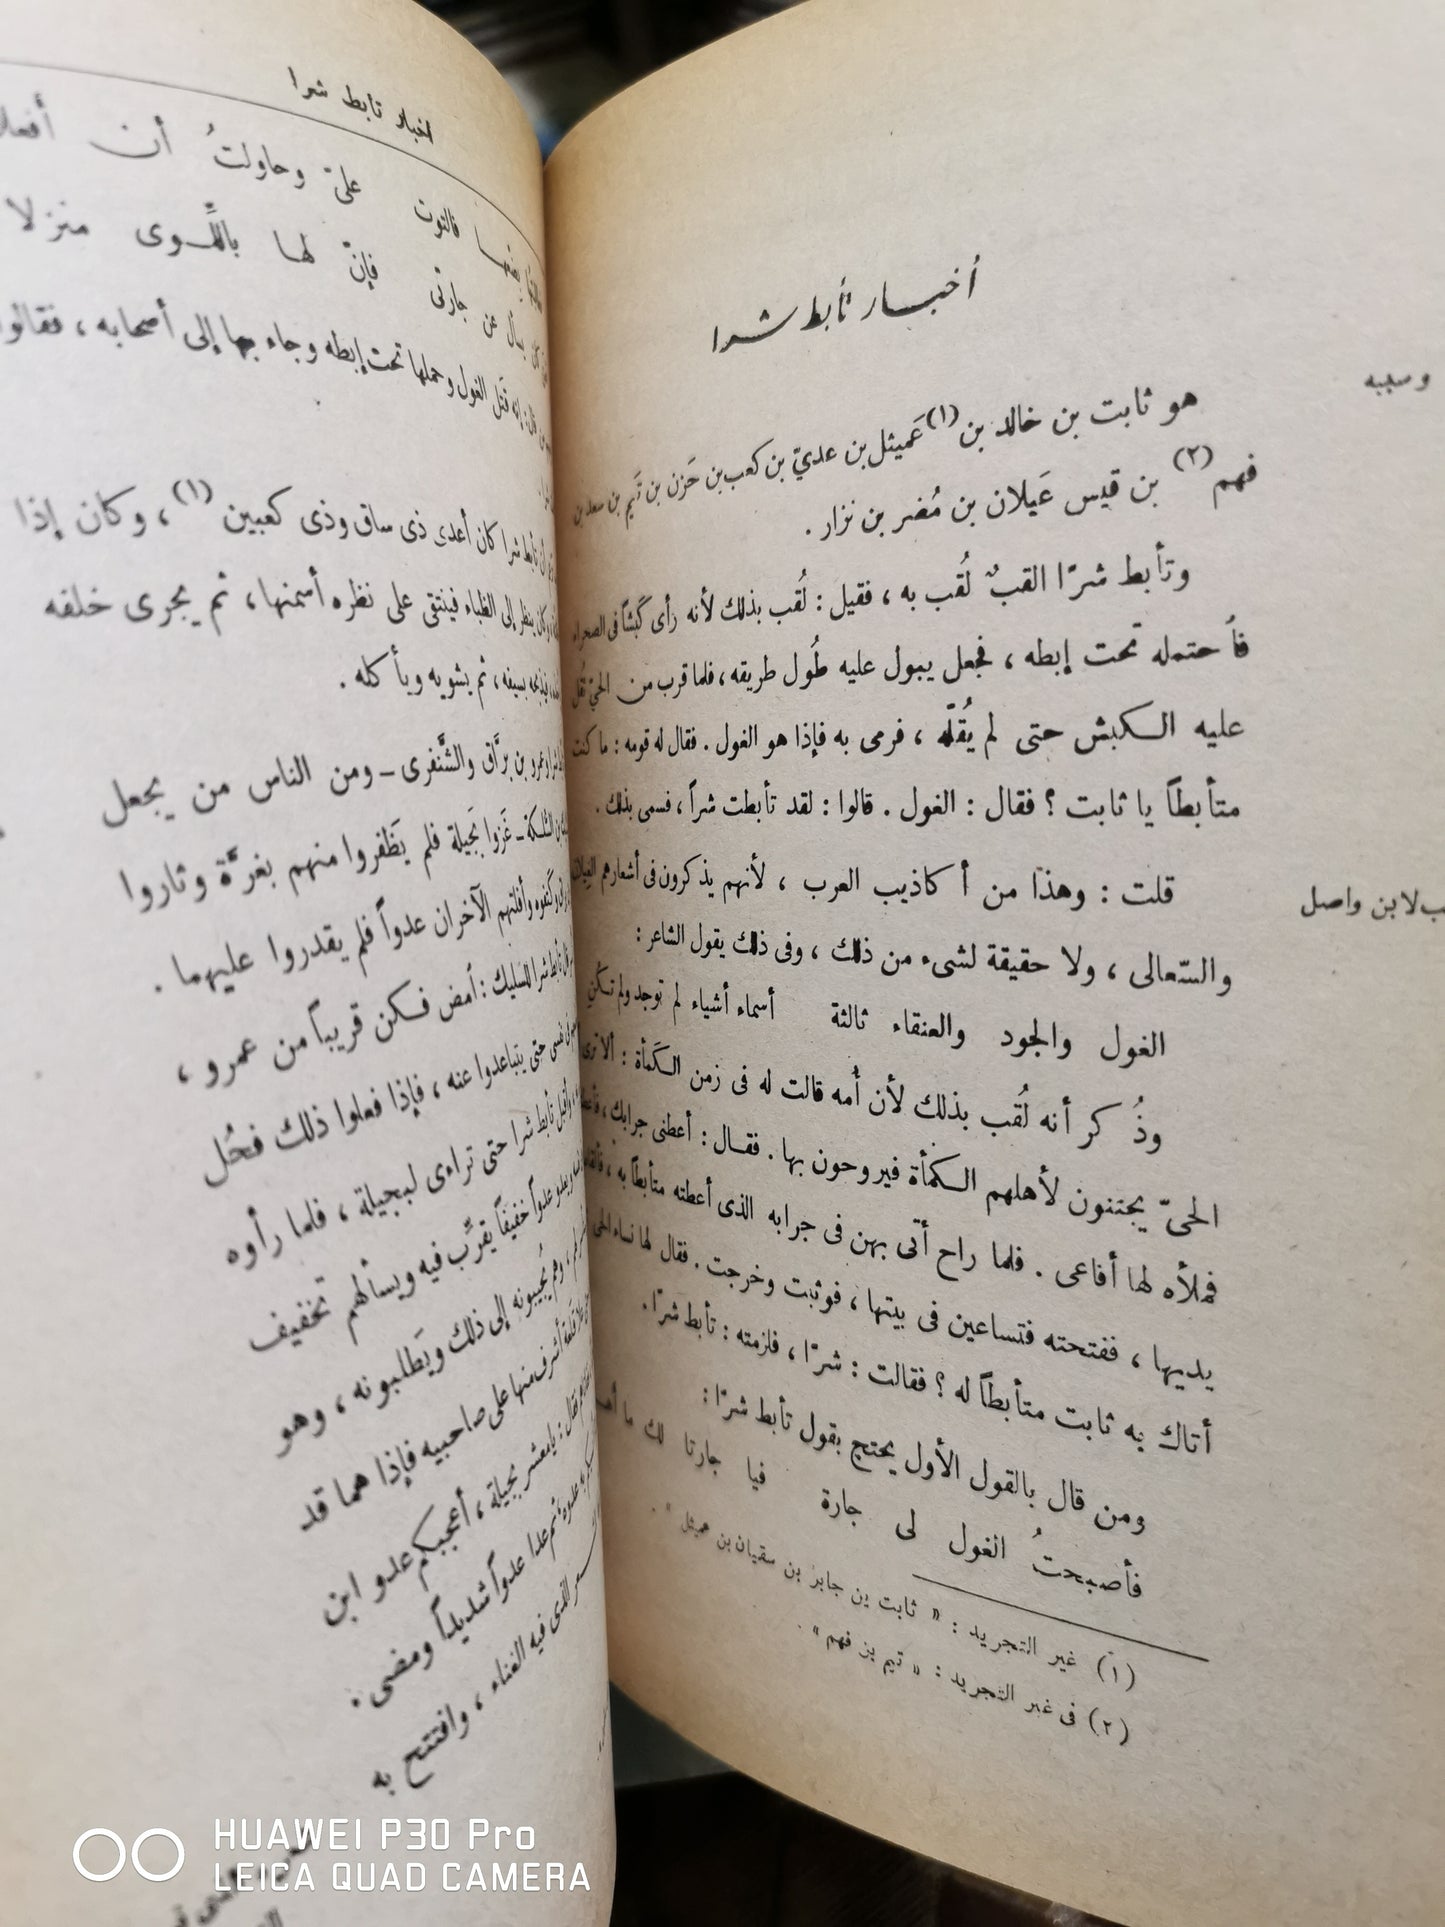 أخبار تأبط شرا
وسببه
هو ثابت بن خالد بن (١) عَميثل بن عديّ بن كعب بن حَزن بن تَيم بن سعد بن
فهم (٢) بن قيس عَيلان بن مُضر بن نزار .
وتأبط شرًا القبٌ لُقب به ، فقيل : لُقب بذلك لأنه رأى كَبْشاً فى الصحراء
فاُحتمله تحت إبطه ، فجعل يبول عليه طُول طريقه ، فلما قرب من الحىّ ثقُل
عليه الكبش حتى لم يُقلّه ، فرمى به فإذا هو الغول . فقال له قومه : ما كنت
متأبطاً يا ثابت ؟ فقال : الغول . قالوا : لقد تأبطت شراً ، فسمى بذلك .
قلت : وهذا من أكاذيب العرب ، لأنهم يذكرون فى أشعارهم الغيلان
لابن واصل
والسّعالى ، ولا حقيقة لشىء من ذلك ، وفى ذلك يقول الشاعر :
الغول والجود والعنقاء ثالثة أسماء أشياء لم توجد ولم تكُنِ
وذُكر أنه لُقب بذلك لأن أُمه قالت له فى زمن الكَمأة : ألا ترى
الحىّ يجتنون لأهلهم الكمأة فيروحون بها . فقال : أعطنى جرابك ،
فملأه لها أفاعى . فلما راح أتى بهن فى جرابه الذى أعطته متأبطاً به ،
يديها ، ففتحته فتساعين فى بيتها ، فوثبت وخرجت . فقال لها نساء الحى
أتاك به ثابت متأبطاً له ؟ فقالت : شرًا ، فلزمته : تأبط شرًا .
ومن قال بالقول الأول يحتج بقول تأبط شرًا :
فأصبحتُ الغول لى جارة فيا جارتا لك ما
(١) غير التجريد : « ثابت بن جابر بن سفيان بن عميثل » .
(٢) فى غير التجريد : « تيم بن فهم » .
اخبار تأبط شرا
فالتوت علىّ وحاولتُ أن أفعلا
يسأل عن جارتى فإنّ لها باللّوى منزلا
قتل الغول وحملها تحت إبطه وجاء بها إلى أصحابه ، فقالوا
تأبط شرا كان أعدى ذى ساق وذى كعبين (١) ، وكان إذا
ينظر إلى الظباء فينتقى على نظره أسمنها ، ثم يجرى خلفه
بسيفه ، ثم يشويه ويأكله .
وعمرو بن برَّاق والشَّنفرى - ومن الناس من يجعل
السُّلكة - غَزوا بَجيلة فلم يَظفروا منهم بغرَّة وثاروا
وكتفوه وأفلتهم الآخران عدواً فلم يقدروا عليهما .
تأبط شرا للسليك : أمض فكن قريباً من عمرو ،
نفسى حتى يتباعدوا عنه ، فإذا فعلوا ذلك فحُل
وأقبل تأبط شرا حتى تراءى لبجيلة ، فلما رأوه
ويعدو عدواً خفيفاً يقرِّب فيه ويسألهم تخفيف
وهم يُجيبونه إلى ذلك ويَطلبونه ، وهو
أشرف منها على صاحبيه فإذا هما قد
فقال : يا معشر بجيلة ، أعجبكم عدو ابن
ثم عدا عدواً شديداً ومضى .
الذى فيه الغناء ، وافتتح به
HUAWEI P30 Pro
LEICA QUAD CAMERA